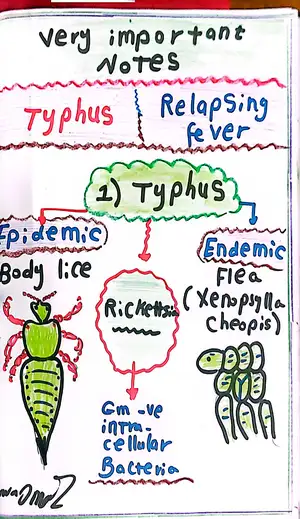 very important
Notes
Typhus
Relapsing
fever
1) Typhus
Epidemic
Body lice
Rickettsia
Endemic
Flea
(Xenopsylla
cheopis)
Gm -ve
intra-
cellular
Bacteria